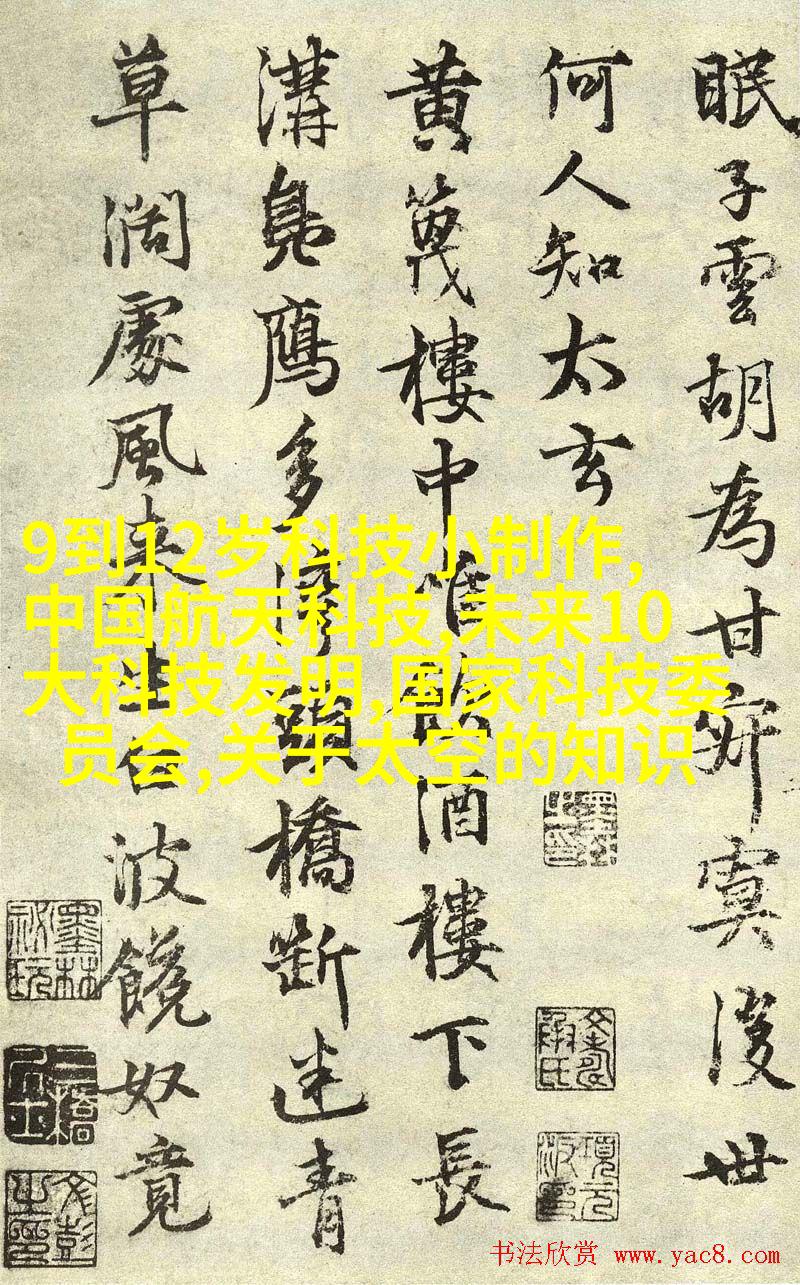 眠子雲胡為甘寂寞後世
何人知太玄
黄篾樓中唯飲酒樓下長
溝鳧多橋斷迷青
草闊處風來生白波饒奴竟
9到12岁科技小制作,
中国航天科技,未来10
大科技发明,国家科技委
员会,关于太空的知识
书法欣赏 www.yac8.com